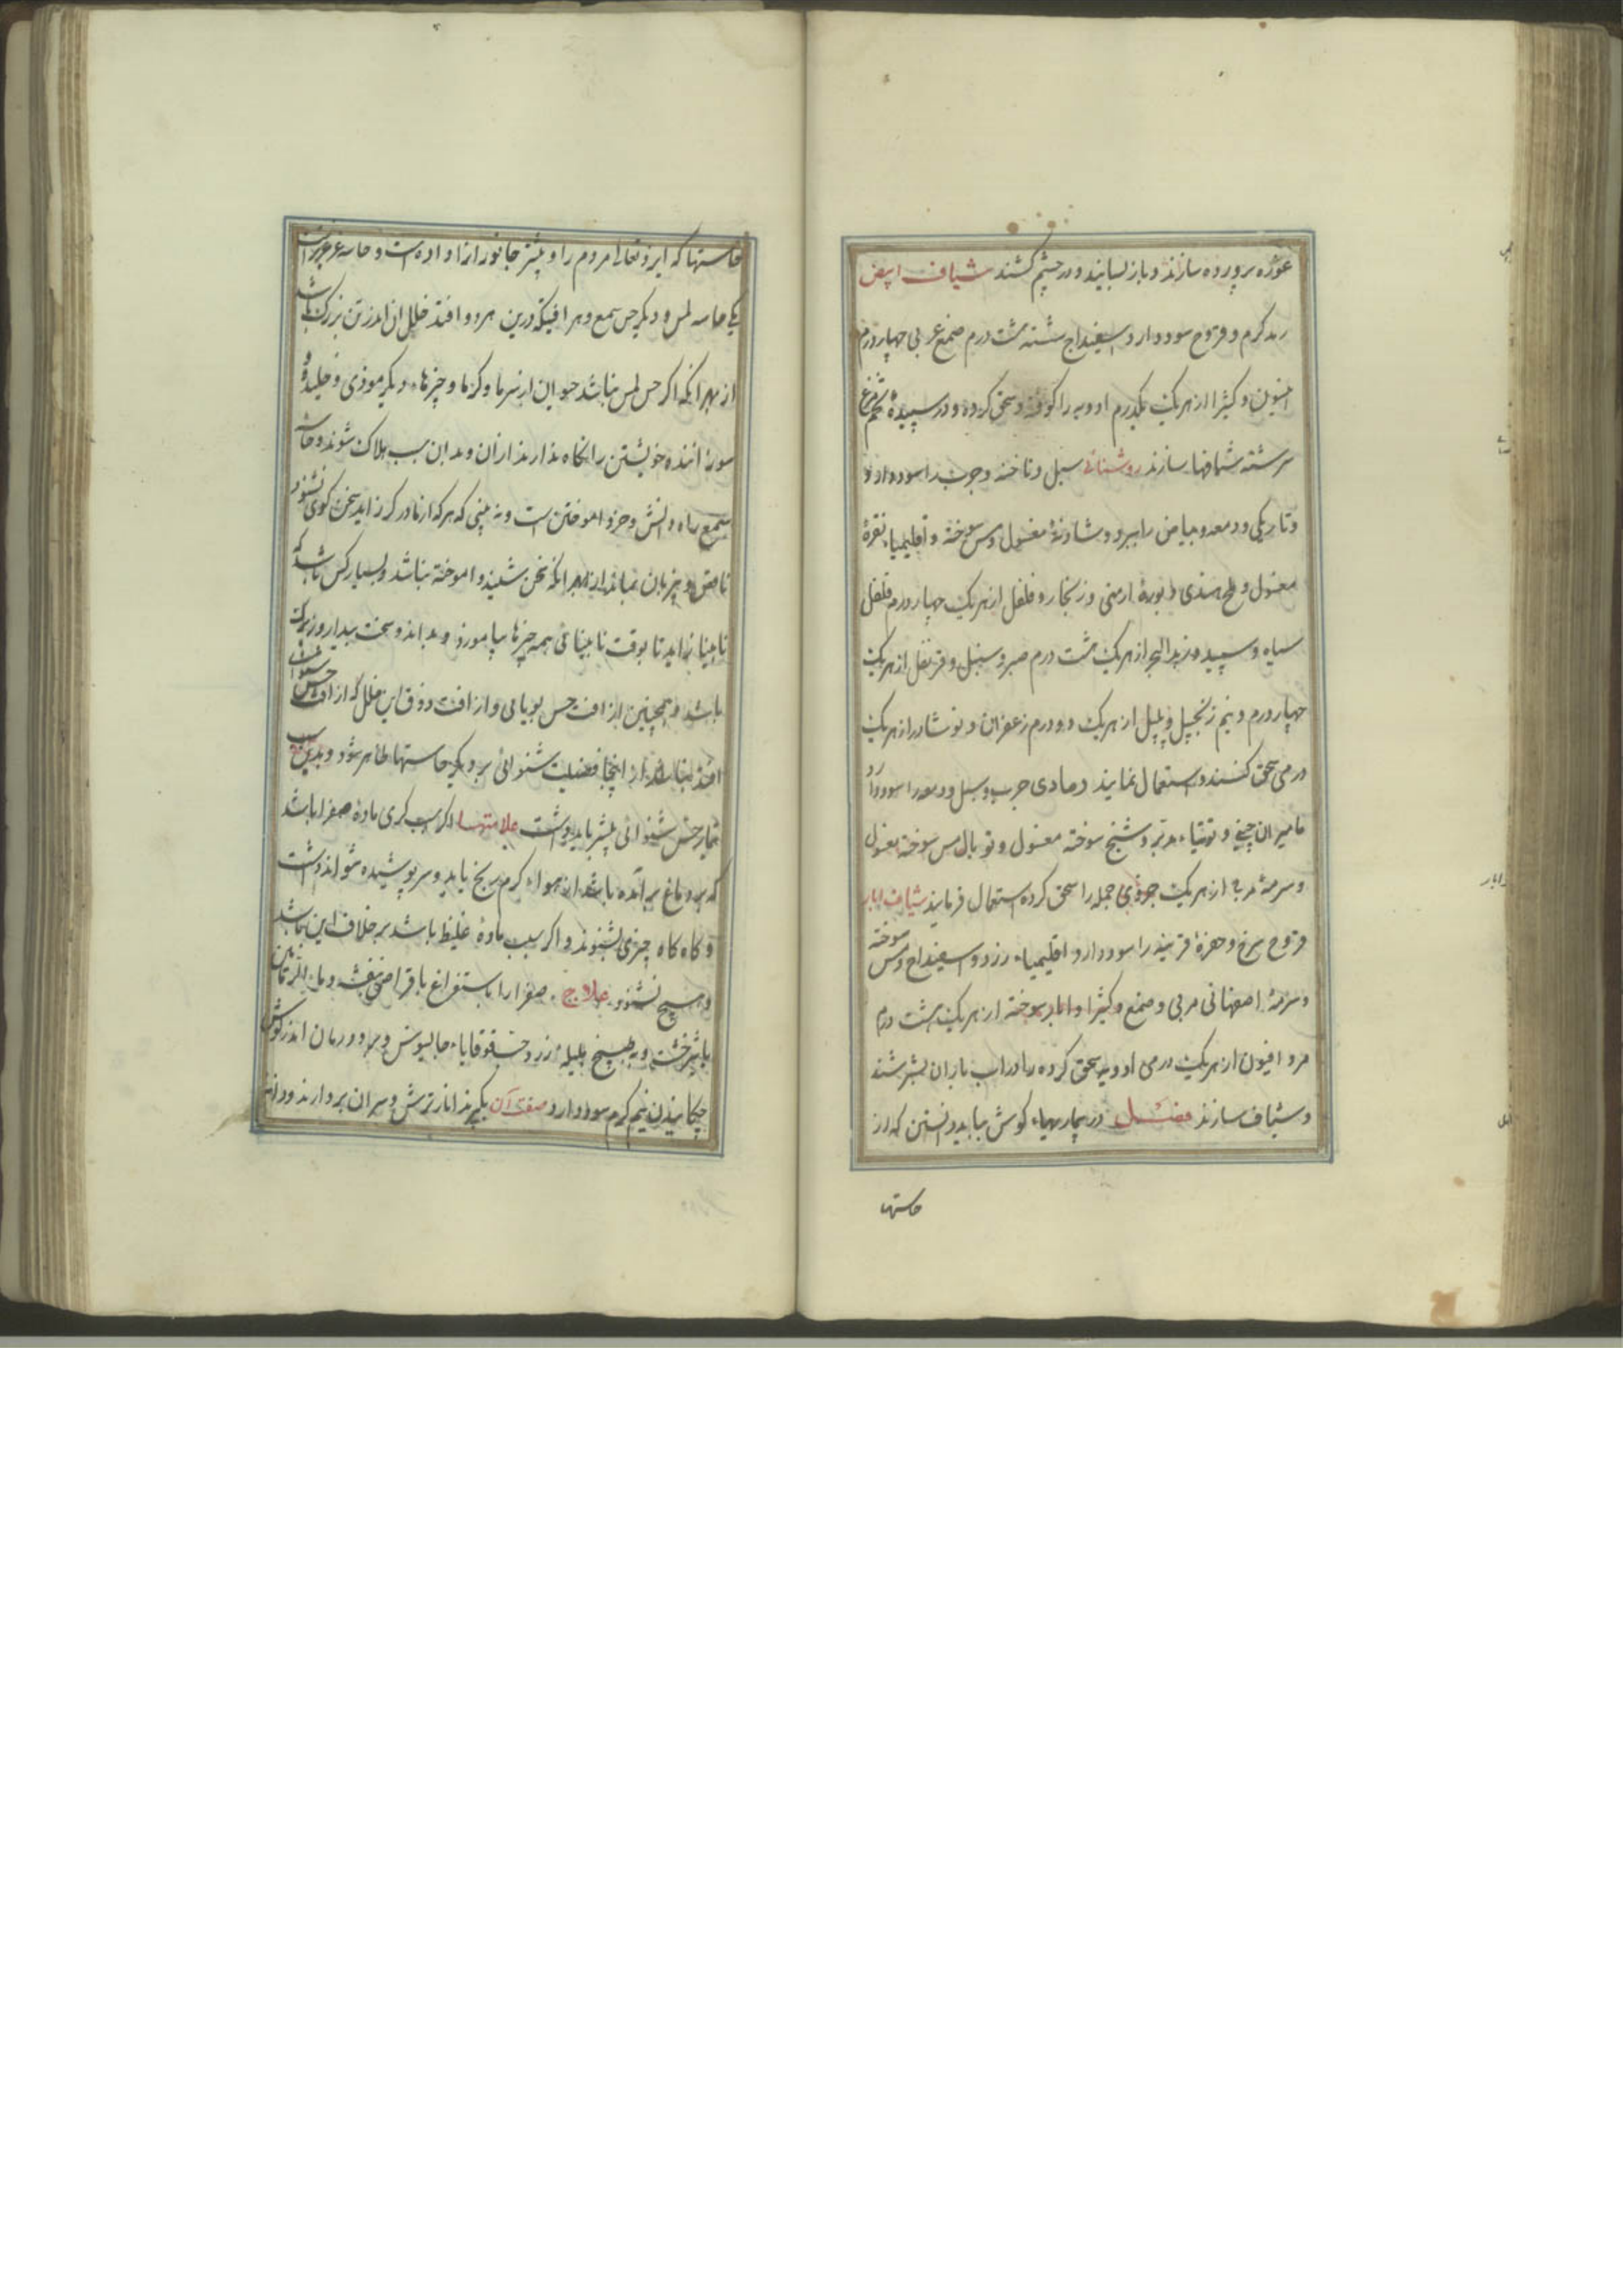 غوره پرورده سازند و باز بسایند و در چشم کشند شیاف ابیض
رمد کرم و قروح سود دارد اسفیداج شسته هشت درم صمغ عربی چهار درم
افیون و کثیرا از هر یک یکدرم ادویه را کوفته و سحق کرده و در سپیدهٔ تخم مرغ
سرشته شیافها سازند روشنائی سبل و ناخنه و جرب را سود دارد و
و تاریکی و دمعه و بیاض را ببرد شادنهٔ مغسول و مس سوخته و اقلیمیاء نقرهٔ
مغسول و ملح هندی و بورهٔ ارمنی و زنجار و فلفل از هر یک چهار درم فلفل
سیاه و سپید و زبد البحر از هر یک هشت درم صبر و سنبل و قرنفل از هر یک
چهار درم و نیم زنجبیل و پلپل از هر یک دو درم زعفران و نوشادر از هر یک
درمی سحق کنند و استعمال نمایند رمادی جرب و سبل و دمعه را سود دارد
مامیران چینی و توتیاء مدبر و شنج سوخته مغسول و توبال مس سوخته مغسول
و سرمهٔ مربی از هر یک جزوی جمله را سحق کرده استعمال فرمایند شیاف ابار
قروح سرخ و حفرهٔ قرنیه را سود دارد اقلیمیاء زرد و اسفیداج و مس سوخته
و سرمهٔ اصفهانی مربی و صمغ و کثیرا و ابار سوخته از هر یک هشت درم
مر و افیون از هر یک درمی ادویه سحق کرده را در اب باران بسرشند
و شیاف سازند فصل در بیماریهاء کوش بباید دانستن که از
حاستها
حاستها که ایزد تعالی مردم را و بیشتر جانور را داده است و حاسه عزیز است
یکی حاسه لمس و دیکر حس سمع و هر افتیکه درین هر دو افتد خلل ان اندر تن بزرک باشد
از بهر انکه اکر حس لمس نباشد حیوان از سرما و کرما و چیزهاء دیکر موذی و خلیده و
سوزاننده خویشتن را نکاه ندارند از ان و بدان سبب هلاک شوند و حاسه
سمع راه دانش و خرد اموختن است و نه بینی که هر که از مادر کر زاید سخن کوی نشنود
ناقص و بی زبان بماند از بهر انکه سخن نشنیده و اموخته نباشد و بسیار کس باشد که
نابینا زاید تا بوقت نابینائی همه چیزها بیاموزد و بداند و سخت بیدار و زیرک
باشد و همچنین از افت حس بویایی و از افت ذوق این خلل که از افت حس شنوائی
افتد نباشد از اینجا فضیلت شنوائی بر دیکر حاستها ظاهر شود و بدین سبب
تیمار حس شنوائی بیشتر باید داشت علامتها اکر سبب کری مادهٔ صفرا باشد
که بر دماغ برآمده باشد از هواء کرم رنج یابد و سر پوشیده نتواند داشت
و کاه کاه چیزی بشنوند و اکر سبب مادهٔ غلیظ باشد بر خلاف این باشد
و هیچ نشنود علاج صفرا را باستفراغ باقراص بنفشه و ماء الرمانین
با شیرخشت و به طبیخ هلیلهٔ زرد و حب قوقایاء جالینوس و بر دو رمان اندر کوش
چکانیدن نیم کرم سود دارد صفت آن بکیرند انار ترش و سر ان بردارند و دانه